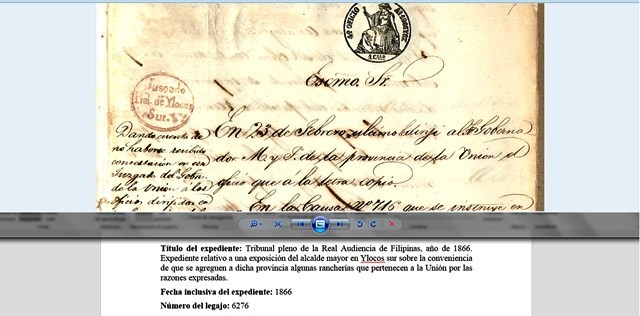 4º OFICIO
Escmo. Sr.
Juzgado
de Ylocos
Sur
Dando cuenta de
no haberse recibido
contestacion en ese
Juzgado del Gobn.
de la Union á los
oficios dirigidos en
En 23 de Febrero
al Sr. Goberna
dor M. y P. de la provincia de la Union el
oficio que á la letra copio.
En las Causas Nº 716 que se instruye en
Título del expediente: Tribunal pleno de la Real Audiencia de Filipinas, año de 1866.
Expediente relativo a una exposición del alcalde mayor en Ylocos sur sobre la conveniencia
de que se agreguen a dicha provincia algunas rancherías que pertenecen a la Unión por las
razones expresadas.
Fecha inclusiva del expediente: 1866
Número del legajo: 6276